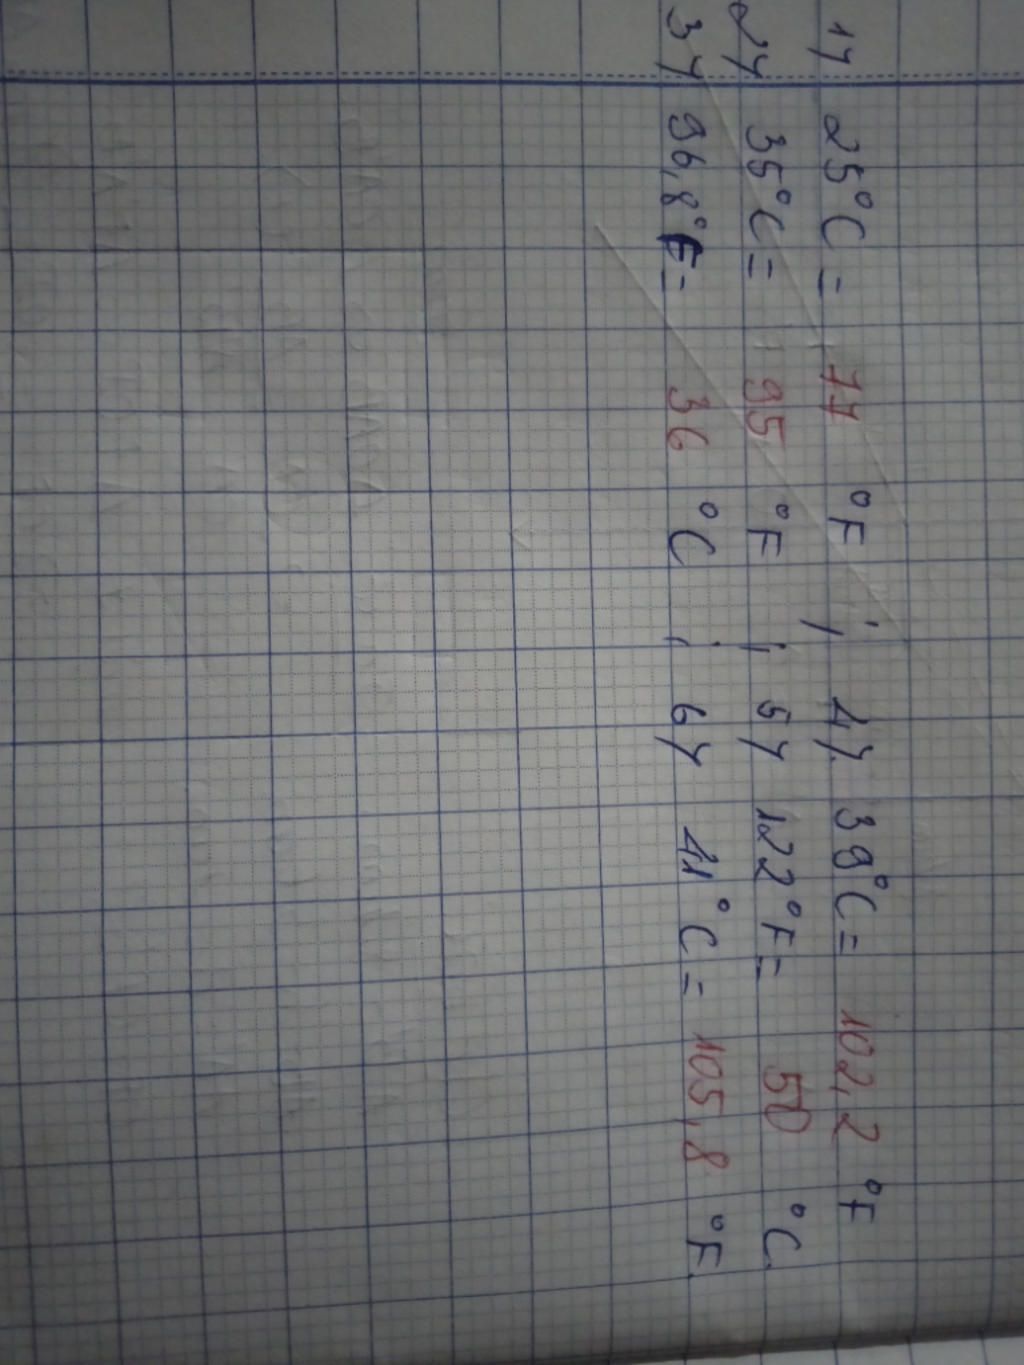 1/ 25°C = 77 °F ; 4/ 39°C = 102,2 °F
2/ 35°C = 95 °F ; 5/ 122°F = 50 °C
3/ 96,8°F = 36 °C ; 6/ 41°C = 105,8 °F